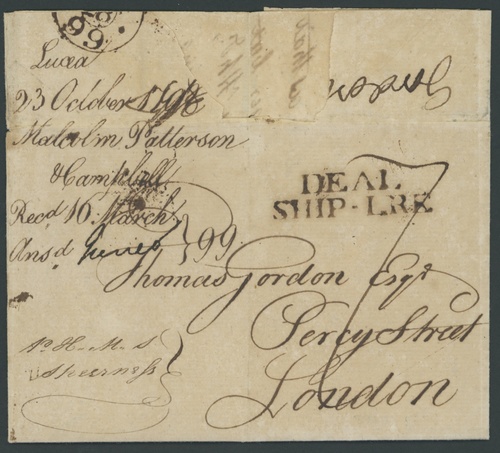 99
Lucea
23 October 1798
Malcolm Patterson
& Campbell.
Recd 16 March
Ansd June } 99.
DEAL
SHIP-LRE
7
Thomas Gordon Esqr
Percy Street
London
Pr H.M.S
Sheerness